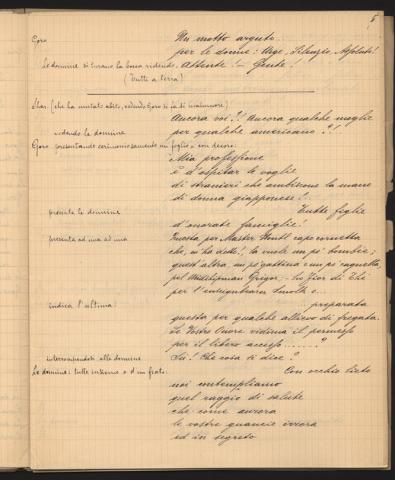 5
Goro Un motto arguto
per le donne: Urge, Silenzio, Assoluto!
Le domine si turano la bocca ridendo. Attente! – Gente!
(Tutti a terra!)
Shar. (che ha mutato abito, vedendo Goro si fa di malumore)
Ancora voi?! Ancora qualche moglie
vedendo le domine per qualche americano?!
Goro presentando cerimoniosamente un foglio e con decoro:
Mia professione
è d'ospitar le voglie
di stranieri che ambiscono la mano
di donna giapponese!
presenta le domine Tutte figlie
d'onorate famiglie!
presenta ad una ad una Questa per Master capo cornetta
che, m'ha detto!, la vuole un po' bombée;
quest'altra, un po' gattina e un po' coquetta,
pel Midshipman Gregor – Fior di Thè
per l'ensign Smith e
indica l'ultima: preparata
questa per qualche allievo di fregata.
Le Vostro Onore vidima il permesso
per il libero accesso.......?
interrompendosi alle domine Sù! Che cosa si dice?
Le domine: tutte insieme e d'un fiato. Con occhio lieto
noi contempliamo
quel raggio di salute
che come aurora
le vostre guancie irrora
ed in segreto